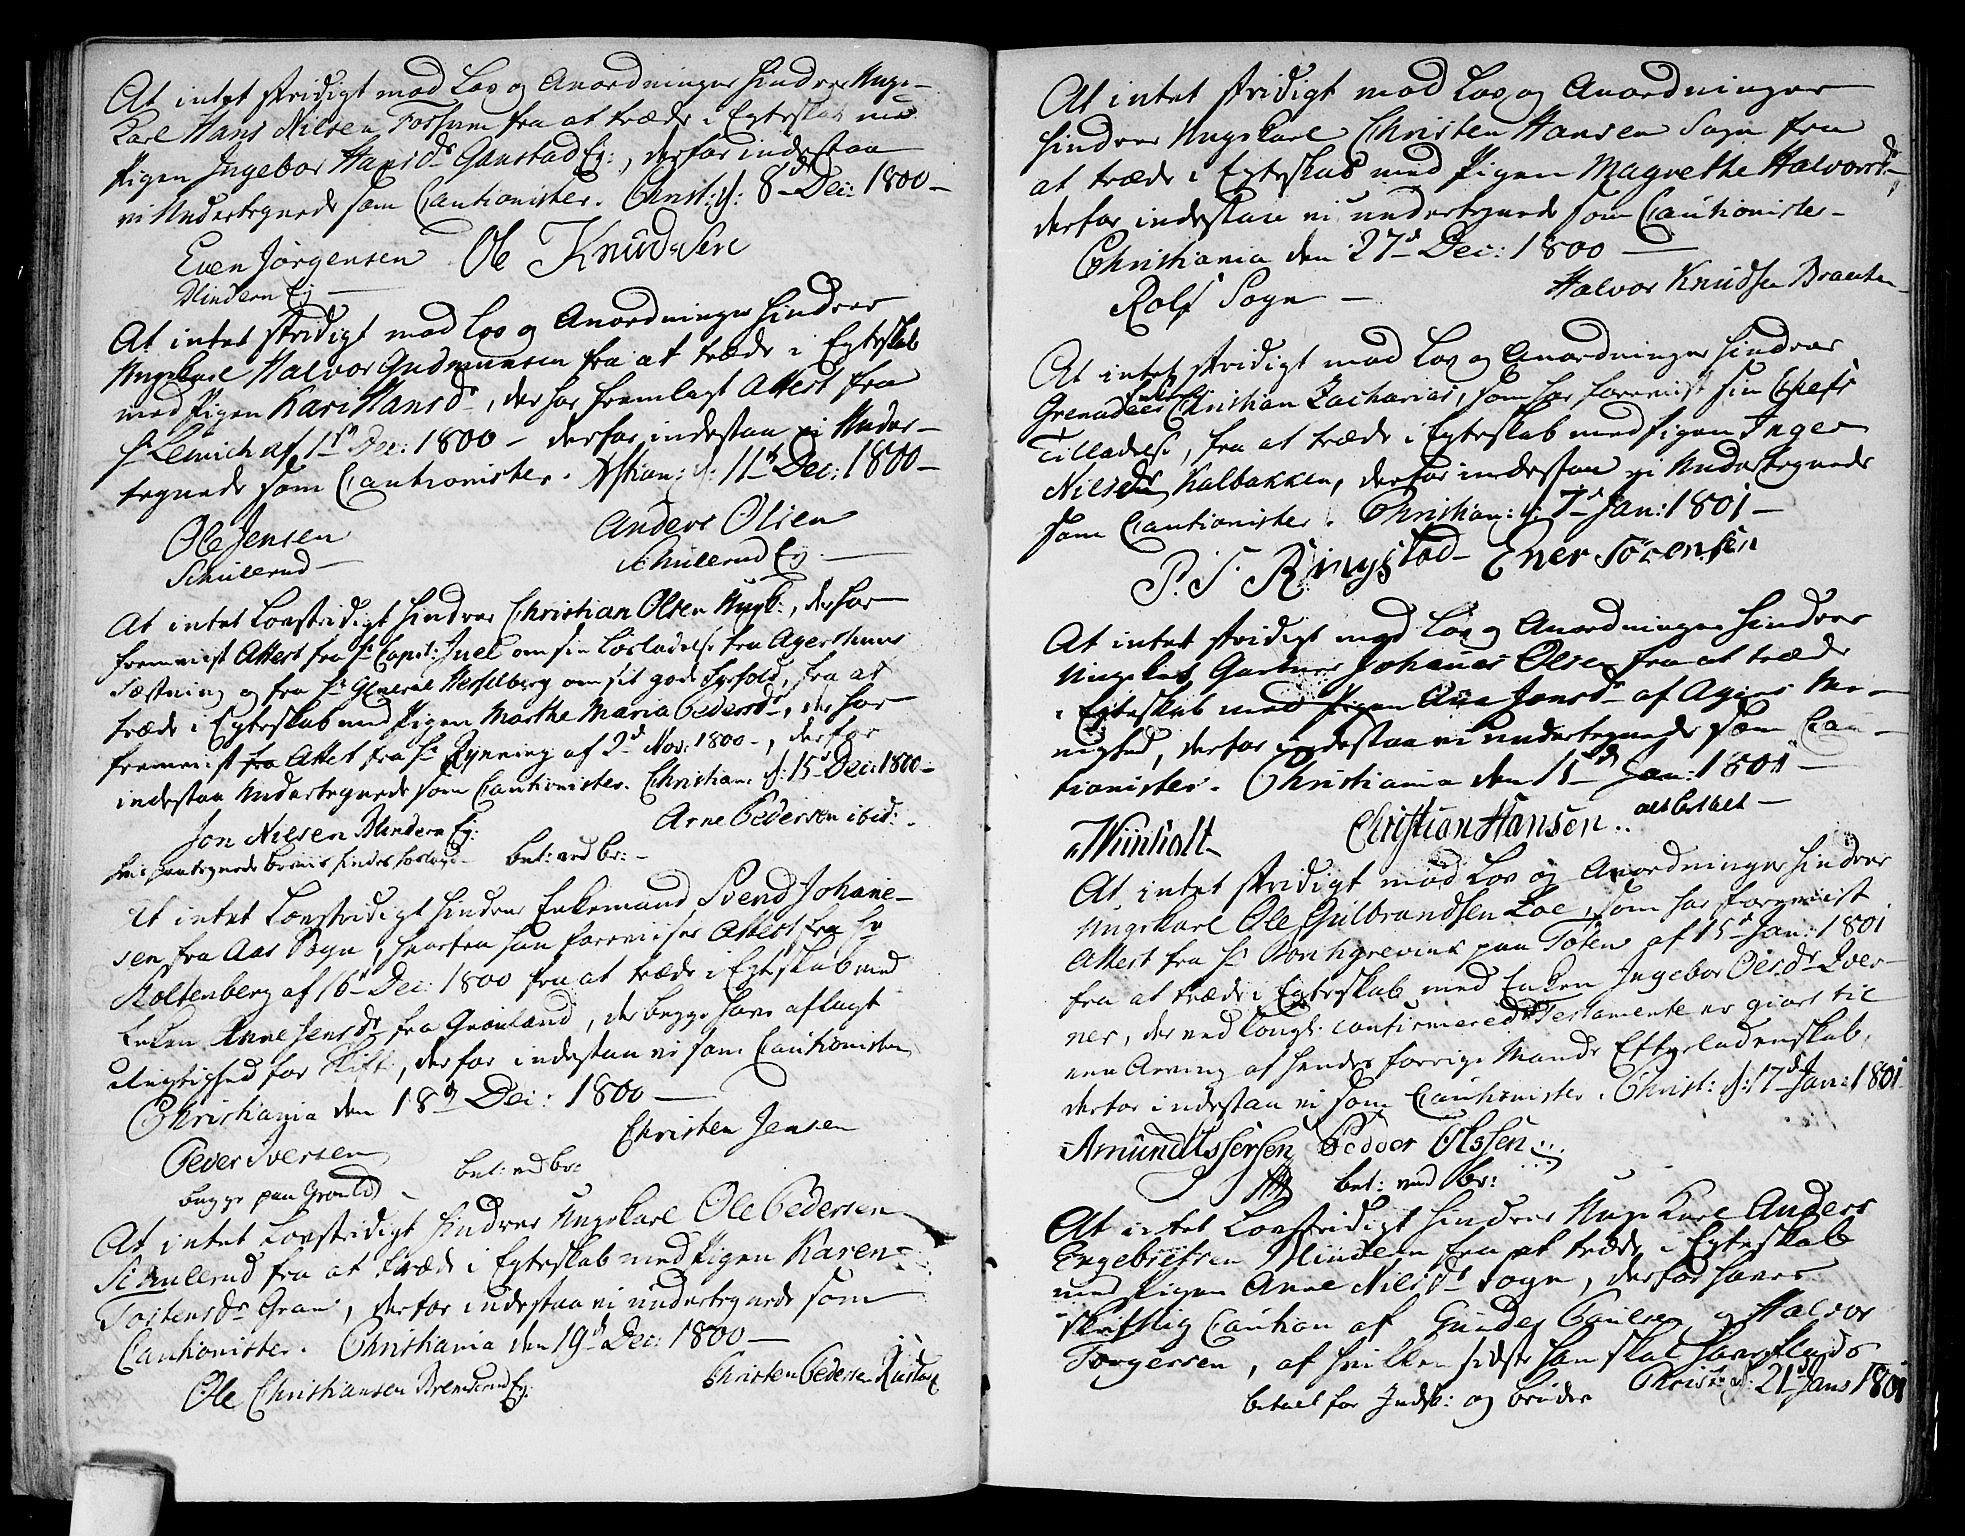 At intet stridigt mod Lov og Anordninger hindrer Unge-
karl Hans Nilsen Fossum fra at træde i Egteskab med
Pigen Ingebor Hansdr Ganstad Eg:, derfor indestaa
vi Undertegnede som Cautionister. Christ: d: 8de Dec: 1800 -
Even Jørgensen Ole Knudsen
Blindern Eg
At intet stridigt mod Lov og Anordninger hindrer
Ungekarl Halvor Gudmunsen fra at træde i Egteskab
med Pigen Kari Hansdr, der har fremlagt Attest fra
Hr Lemich af 1ste Dec: 1800 - derfor indestaa vi Under-
tegnede som Cautionister. Xstian: d: 11te Dec: 1800 -
Ole Jensen Anders Olsen
Schullerud - Schullerud Eg.
At intet Lovstridigt hindrer Christian Olsen Ungk:, der har
fremviist Attest fra Hr Capit: Juel om sin Løsladelse fra Agershuus
Fæstning og fra Hr General Hesselberg om sit gode Forhold, fra at
træde i Egteskab med Pigen Marthe Maria Pedersdr, der har
fremviist fra Attest fra Hr Rynning af 2d Nov: 1800 -, derfor
indestaa Undertegnede som Cautionister. Christian: d: 15d Dec: 1800 -
Jon Nilsen Blindern Eg: Arne Pedersen ibid: -
bet: ved br: -
At intet Lovstridigt hindrer Enkemand Svend Johane-
sen fra Aas Sogn, hvorfra han foreviser Attest fra Hr
Koltenberg af 16d Dec: 1800 fra at træde i Egteskab med
Enken Anne Jensdr fra Grønland, der begge have aflagt
Rigtighed for Skifte, derfor indestaa vi som Cautionister
Christiania den 18de Dec: 1800 -
Peder Iversen Christen Jensen
begge paa Grønld - bet: ved br:
At intet Lovstridigt hindrer Ungekarl Ole Pedersen
Schullerud fra at træde i Egteskab med Pigen Karen
Tostensdr Gran, derfor indestaa vi undertegnede som
Cautionister. Christiania den 19d Dec: 1800 -
Ole Christiansen Brenderud Eg: Christen Pedersen Rustad
At intet stridigt mod Lov og Anordninger
hindrer Ungekarl Christen Hansen Sogn fra
at træde i Egteskab med Pigen Magrethe Halvorsdr,
derfor indestaa vi undertegnede som Cautionister -
Christiania den 27d Dec: 1800 -
Rolf Sogn - Halvor Knudsen Braaten
At intet stridigt mod Lov og Anordninger hindrer
Grenadeer Christian Zacharias, som har foreviist sin Chefs
Tilladelse, fra at træde i Egteskab med Pigen Inger
Nilsdr Kalbakken, derfor indestaa vi Undertegnede
som Cautionister. Christian: d: 7d Jan: 1801 -
P. S. Ringstad - Ener Sørensen
At intet stridigt mod Lov og Anordninger hindrer
Ungekarl Gartner Johanes Olsen fra at træde
i Egteskab med Pigen Ana Jonsdr af Agers Me-
nighed, derfor indestaa vi undertegnede som Cau-
tionister. Christiania den 15d Jan: 1801 -
Christian Hansen .. alt betalt -
At intet stridigt mod Lov og Anordninger hindrer
Ungekarl Ole Gulbrandsen Loe, som har foreviist
Attest fra Hr Borchgrevink paa Toten af 15d Jan: 1801
fra at træde i Egteskab med Enken Ingebor Olesdr Qver-
ner, der ved Kongl: confirmered Testamente er giort til
ene Arving af hendes forrige Mands Efterladenskab,
derfor indestaa vi som Cautionister. Christ: d: 17d Jan: 1801
Amund Assersen Pedver Olssen
bet: ved br:
At intet Lovstridigt hindrer Ungekarl Anders
Engebretsen Blindern fra at træde i Egteskab
med Pigen Anne Nilsdr Sogn, derfor haves
skriftlig Caution af Gunder Paulsen og Halvor
Torgersen, af hvilken sidste han skal have
Christ: d: 21d Jan: 1801
betalt for Indsk: og bruder